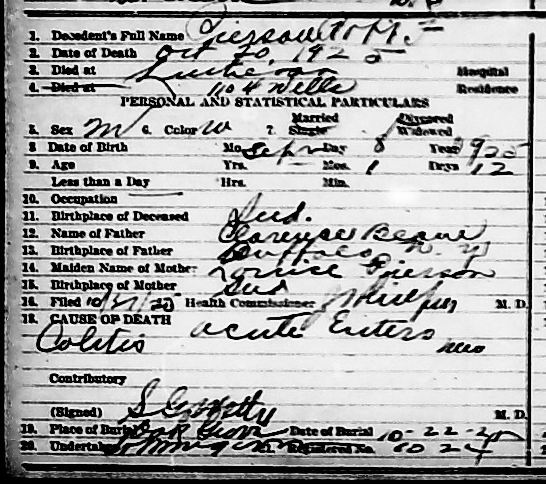 1. Decedent's Full Name Pierson
2. Date of Death Oct 20, 1925
3. Died at Lutheran Hospital
4. Died at Wells Residence
PERSONAL AND STATISTICAL PARTICULARS
5. Sex M 6. Color W 7. Married Single Divorced Widowed
8 Date of Birth Mo. Sept Day 8 Year 1925
9. Age Yrs. Mos. 1 Days 12
Less than a Day Hrs. Min.
10. Occupation
11. Birthplace of Deceased Ind.
12. Name of Father Clarence
13. Birthplace of Father Buffalo N. Y
14. Maiden Name of Mother Louise Pierson
15. Birthplace of Mother Ind
16. Filed Health Commissioner M. D.
18. CAUSE OF DEATH acute Entero
Colitis
Contributory
(Signed) M. D.
19. Place of Burial Date of Burial 10-22-25
20. Undertaker Registered No.